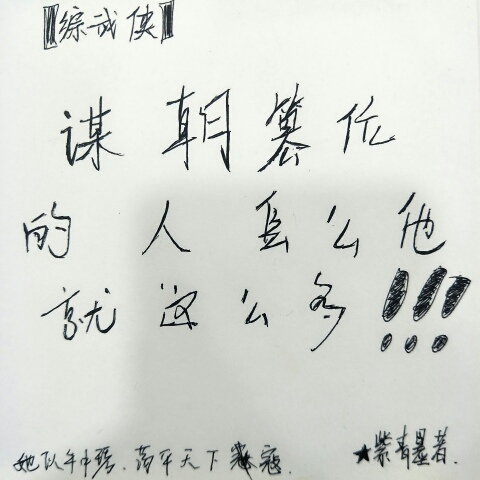 【综武侠】
谋朝篡位
的人怎么他
就这么多!!!
她以手中琴,荡平天下寇.
★紫青墨著.